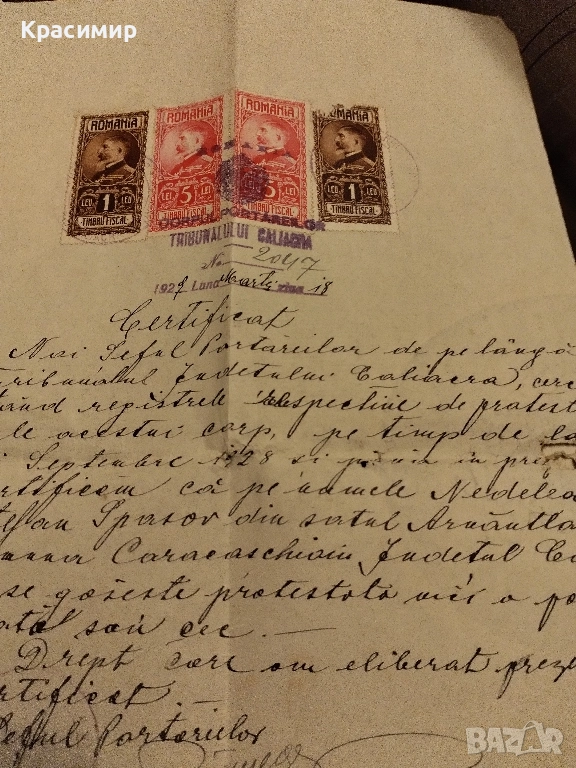 Красимир
ROMANIA ROMANIA ROMANIA ROMANIA
LEU 1 LEU 5 LEI 5 LEI LEU 1 LEU
TIMBRU FISCAL TIMBRU FISCAL TIMBRU FISCAL TIMBRU FISCAL
CORPUL PORTAREILOR
TRIBUNALULUI CALIACRA
No 2047
1929 Luna Martie ziua 18
Certificat
Noi Șeful Portăreilor de pe lângă
Tribunalul Județului Caliacra, cerc
tând registrele respective de protest
le acestui corp, pe timp de
Septembrie 1928 si până in pre
rtificăm că pe numele Nedelea
tefan Spasov din satul Arnăutla
muna Caracaschioiu, Judetul Ca
se găseste protestata nici o po
ată sau cec. —
Drept care am eliberat preze
rtificat. —
Seful Portareilor
BAZAR
bg